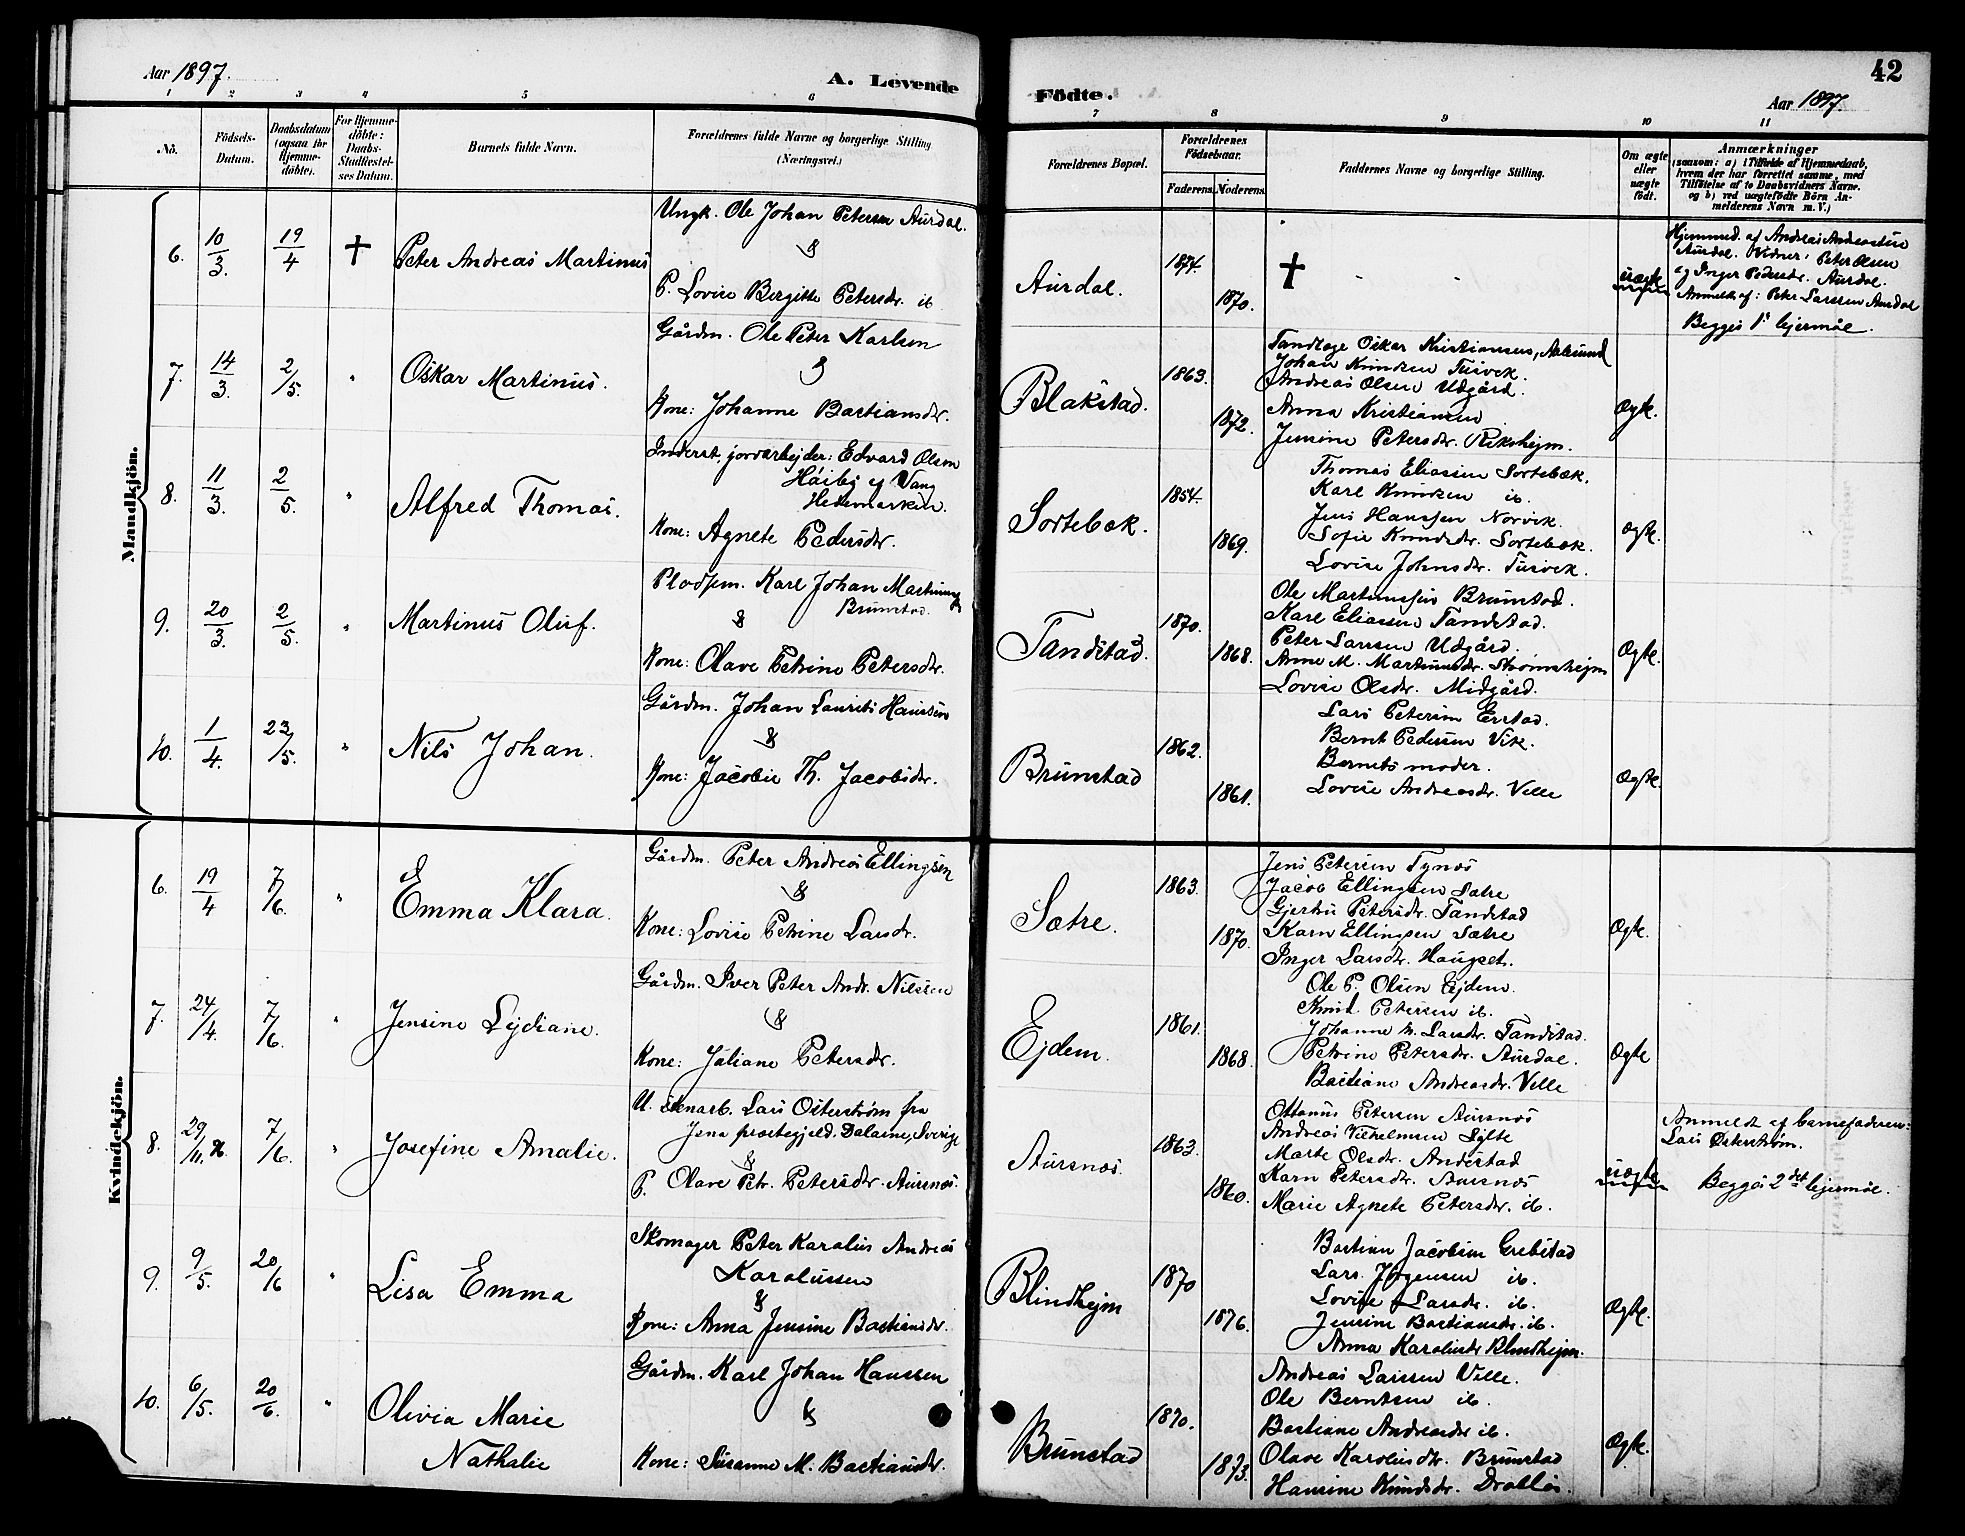 Aar 1897.
A. Levende
Födte.
Aar 1897.
42
1 2 3 4 5 6 7 8 9 10 11
No.
Födsels-Datum.
Daabsdatum (ogsaa for Hjemme-döbte).
For Hjemme-döbte: Daabs-Stadfæstel-ses Datum.
Barnets fulde Navn.
Forældrenes fulde Navne og borgerlige Stilling (Næringsvei.)
Forældrenes Bopæl.
Forældrenes Födselsaar.
Faderens. Moderens.
Faddernes Navne og borgerlige Stilling.
Om ægte eller uægte födt.
Anmærkninger
(saasom: a) i Tilfælde af Hjemmedaab, hvem der har forrettet samme, med Tilföielse af to Daabsvidners Navne. og b) ved uægtefödte Börn An-melderens Navn m. V.)
Mandkjön.
6. 10/3. 19/4 † Peter Andreas Martinus
Ungk. Ole Johan Petersen Aurdal.
&
P. Lovise Bergitte Petersdr. ib
Aurdal. 1874. 1870.
†
uægte
Hjemmed. af Andreas Andreassen
Aurdal. Vidner: Peter Olsen
og Inger Pedersdr. Aurdal.
Anmeldt af: Peter Larssen Aurdal
Begges 1ste lejermål.
7. 14/3. 2/5. " Oskar Martinus.
Gårdm. Ole Peter Karlsen
&
Kone: Johanne Bastiansdr.
Blakstad. 1863. 1872.
Tandlæge Oskar Kristiansen, Aalesund
Johan Knudsen Tusvik.
Andreas Olsen Udgård.
Anna Kristiansen
Jensine Petersdr. Riksheim.
Ægte.
8. 11/3. 2/5. " Alfred Thomas.
Inderst, jordarbejder: Edvard Olsen
Høiby af Vang
Hedemarken.
Kone: Agnete Pedersdr.
Sortebæk. 1854. 1869.
Thomas Eliassen Sortebæk.
Karl Knudsen ib.
Jens Hanssen Norvik.
Sofie Knudsdr. Sortebæk.
Lovise Johnsdr. Tusvik.
Ægte.
9. 20/3. 2/5. " Martinus Oluf.
Pladsm. Karl Johan Martinussen
Brunstad.
&
Kone: Olave Petrine Petersdr.
Tandstad. 1870. 1868.
Ole Martinussen Brunstad.
Karl Eliassen Tandstad.
Peter Larssen Udgård.
Anne M. Martinusdr. Strømshejm
Lovise Olsdr. Midgård.
Ægte.
10. 1/4. 23/5. " Nils Johan.
Gårdm. Johan Laurits Hanssen
&
Kone: Jacobie Th. Jacobsdr.
Brunstad 1862. 1861.
Lars Petersen Erstad.
Bernt Pedersen Vik.
Bernts moder.
Lovise Andreasdr. Velle
Ægte.
Kvindekjön.
6. 19/4 7/6. " Emma Klara.
Gårdm. Peter Andreas Ellingsen
&
Kone: Lovise Petrine Larsdr.
Sætre. 1863. 1870.
Jens Petersen Tynæs
Jacob Ellingsen Sætre
Gjertru Petersdr. Tandstad
Karn Ellingsen Sætre
Inger Larsdr. Haugset.
Ægte.
7. 24/4. 7/6. " Jensine Lydiane.
Gårdm. Iver Peter Andr. Nilssen
&
Kone: Juliane Petersdr.
Ejdem. 1861. 1868.
Ole P. Olsen Ejdem.
Knud Petersen ib.
Johanne M. Larsdr. Tandstad.
Petrine Petersdr. Aurdal.
Bastiane Andreasdr. Velle
Ægte
8. 29/11.96 7/6. " Josefine Amalie.
U. stenarb. Lars Osterstrøm fra
Jerna præstegjeld. Dalarne, Sverige
&
P. Olave Petr. Petersdr. Aursnæs.
Aursnæs. 1863. 1860.
Ottanus Petersen Aursnæs
Andreas Vilhelmsen Sylte
Marte Olsdr. Andestad
Karn Petersdr. Aursnæs
Marie Agnete Petersdr. ib.
uægte
Anmeldt af barnefaderen:
Lars Osterstrøm.
Begges 2det lejermål.
9. 9/5. 20/6 " Lisa Emma
Skomager Peter Karolius Andreas
Karolussen
&
Kone: Anna Jensine Bastiansdr.
Blindhejm 1870 1876.
Bastian Jacobsen Grebstad
Lars Jørgensen ib.
Lovise Larsdr. ib.
Jensine Bastiansdr. ib.
Anna Karolusdr. Blindhejm.
Ægte.
10. 6/5. 20/6. " Olivia Marie
Nathalie
Gårdm. Karl Johan Hanssen
&
Kone: Susanne M. Bastiansdr.
Brunstad 1870. 1873.
Andreas Larssen Velle.
Ole Berntsen ib.
Bastiane Andreasdr ib.
Olave Karolusdr. Brunstad
Hansine Knudsdr. Drabløs.
Ægte.